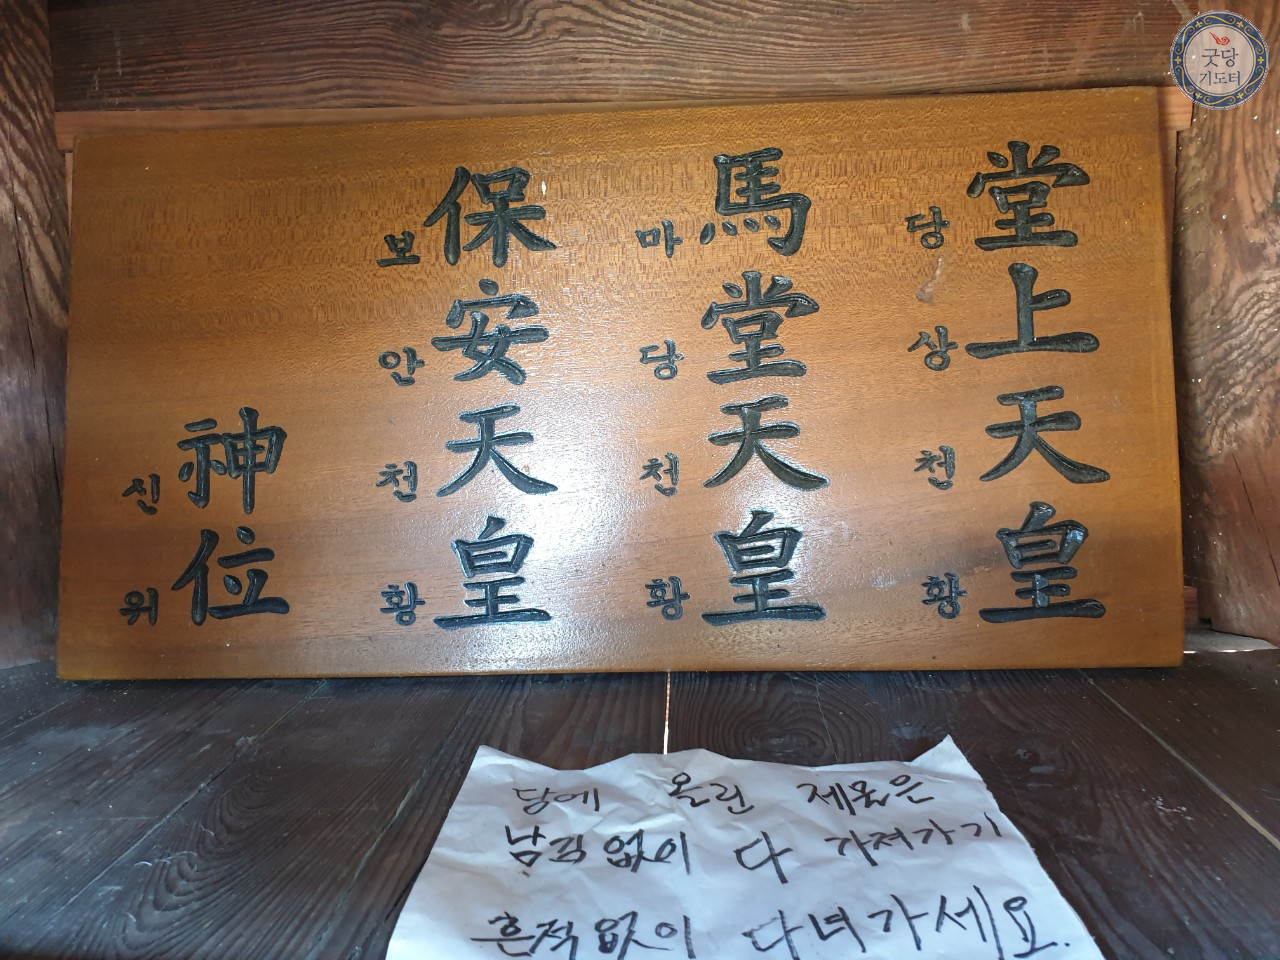 堂上天皇
당상천황
馬堂天皇
마당천황
保安天皇
보안천황
神位
신위
당에 올린 제물은
남김없이 다 가져가기
흔적없이 다녀가세요.
굿당
기도터